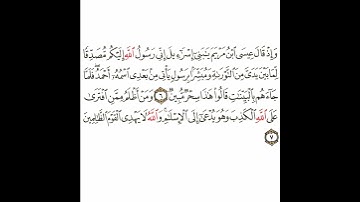 وَإِذْ قَالَ عِيسَى ٱبْنُ مَرْيَمَ يَٰبَنِىٓ إِسْرَٰٓءِيلَ إِنِّى رَسُولُ ٱللَّهِ إِلَيْكُم مُّصَدِّقًا
لِّمَا بَيْنَ يَدَىَّ مِنَ ٱلتَّوْرَىٰةِ وَمُبَشِّرًۢا بِرَسُولٍ يَأْتِى مِنۢ بَعْدِى ٱسْمُهُۥٓ أَحْمَدُ ۖ فَلَمَّا
جَآءَهُم بِٱلْبَيِّنَٰتِ قَالُوا۟ هَٰذَا سِحْرٌ مُّبِينٌ ٦ وَمَنْ أَظْلَمُ مِمَّنِ ٱفْتَرَىٰ
عَلَى ٱللَّهِ ٱلْكَذِبَ وَهُوَ يُدْعَىٰٓ إِلَى ٱلْإِسْلَٰمِ ۚ وَٱللَّهُ لَا يَهْدِى ٱلْقَوْمَ ٱلظَّٰلِمِينَ
٧